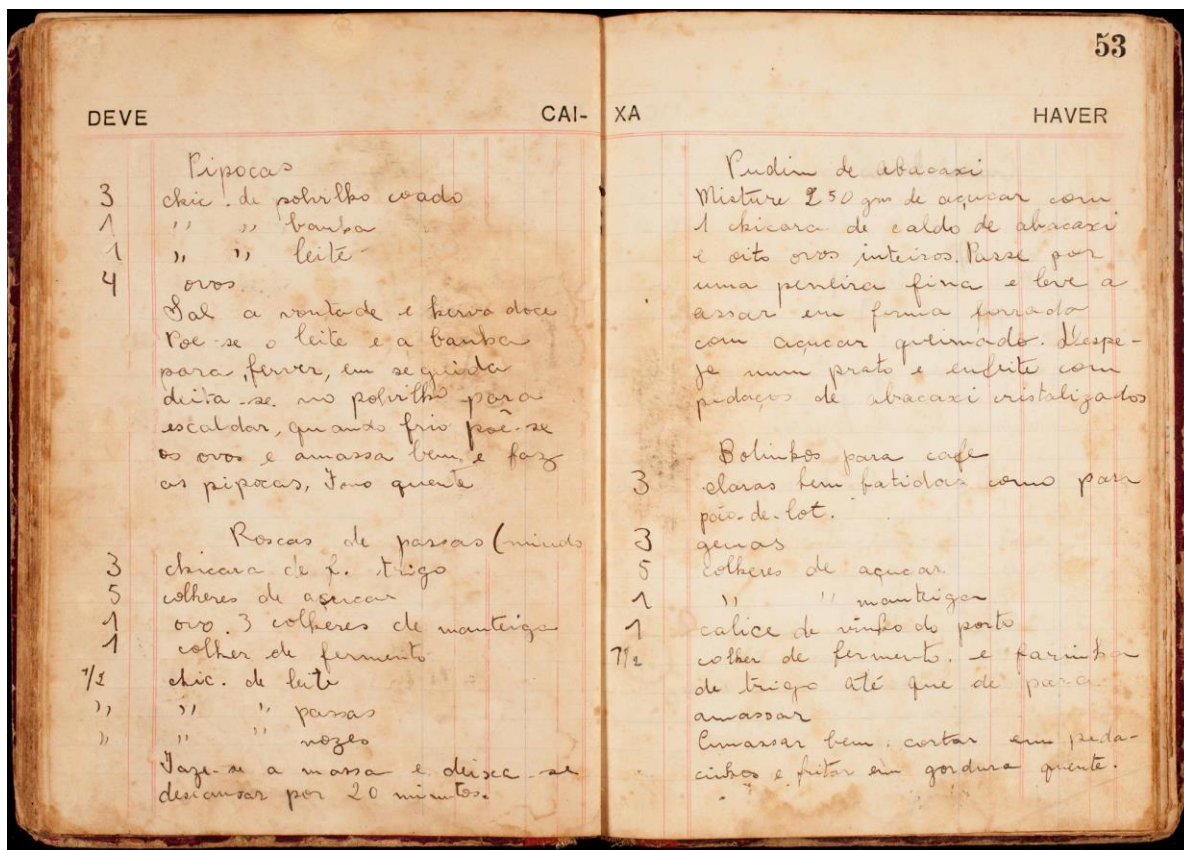 DEVE CAI-
Pipocas
3 chic. de polvilho coado
1 " " banha
1 " " leite
4 ovos
Sal a vontade e herva doce
Põe-se o leite e a banha
para ferver, em seguida
deita-se no polvilho para
escaldar, quando frio põe-se
os ovos e amassa bem, e faz
as pipocas, Forno quente
Roscas de passas (miudo
3 chicara de f. trigo
5 colheres de açucar
1 ovo. 3 colheres de manteiga
1 colher de fermento
1/2 chic. de leite
" " " passas
" " " nozes
Faze-se a massa e deixa-se
descansar por 20 minutos.
53
XA HAVER
Pudim de abacaxi
Misture 250 grs de açucar com
1 chicara de caldo de abacaxi
e oito ovos inteiros. Passe por
uma peneira fina e leve a
assar em forma forrada
com açucar queimado. Despe-
je num prato e enfeite com
pedaços de abacaxi cristalizados
Bolinhos para cafe
3 claras bem batidas como para
pão-de-lot.
3 gemas
5 colheres de açucar
1 " " manteiga
1 calice de vinho do porto
1/2 colher de fermento. e farinha
de trigo até que de para
amassar
Amassar bem, cortar em peda-
cinhos e fritar em gordura quente.